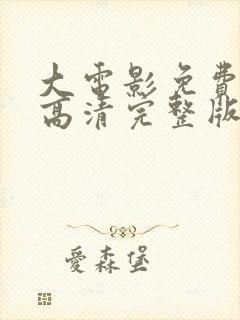 大電影免費
高清完整版
愛森堡